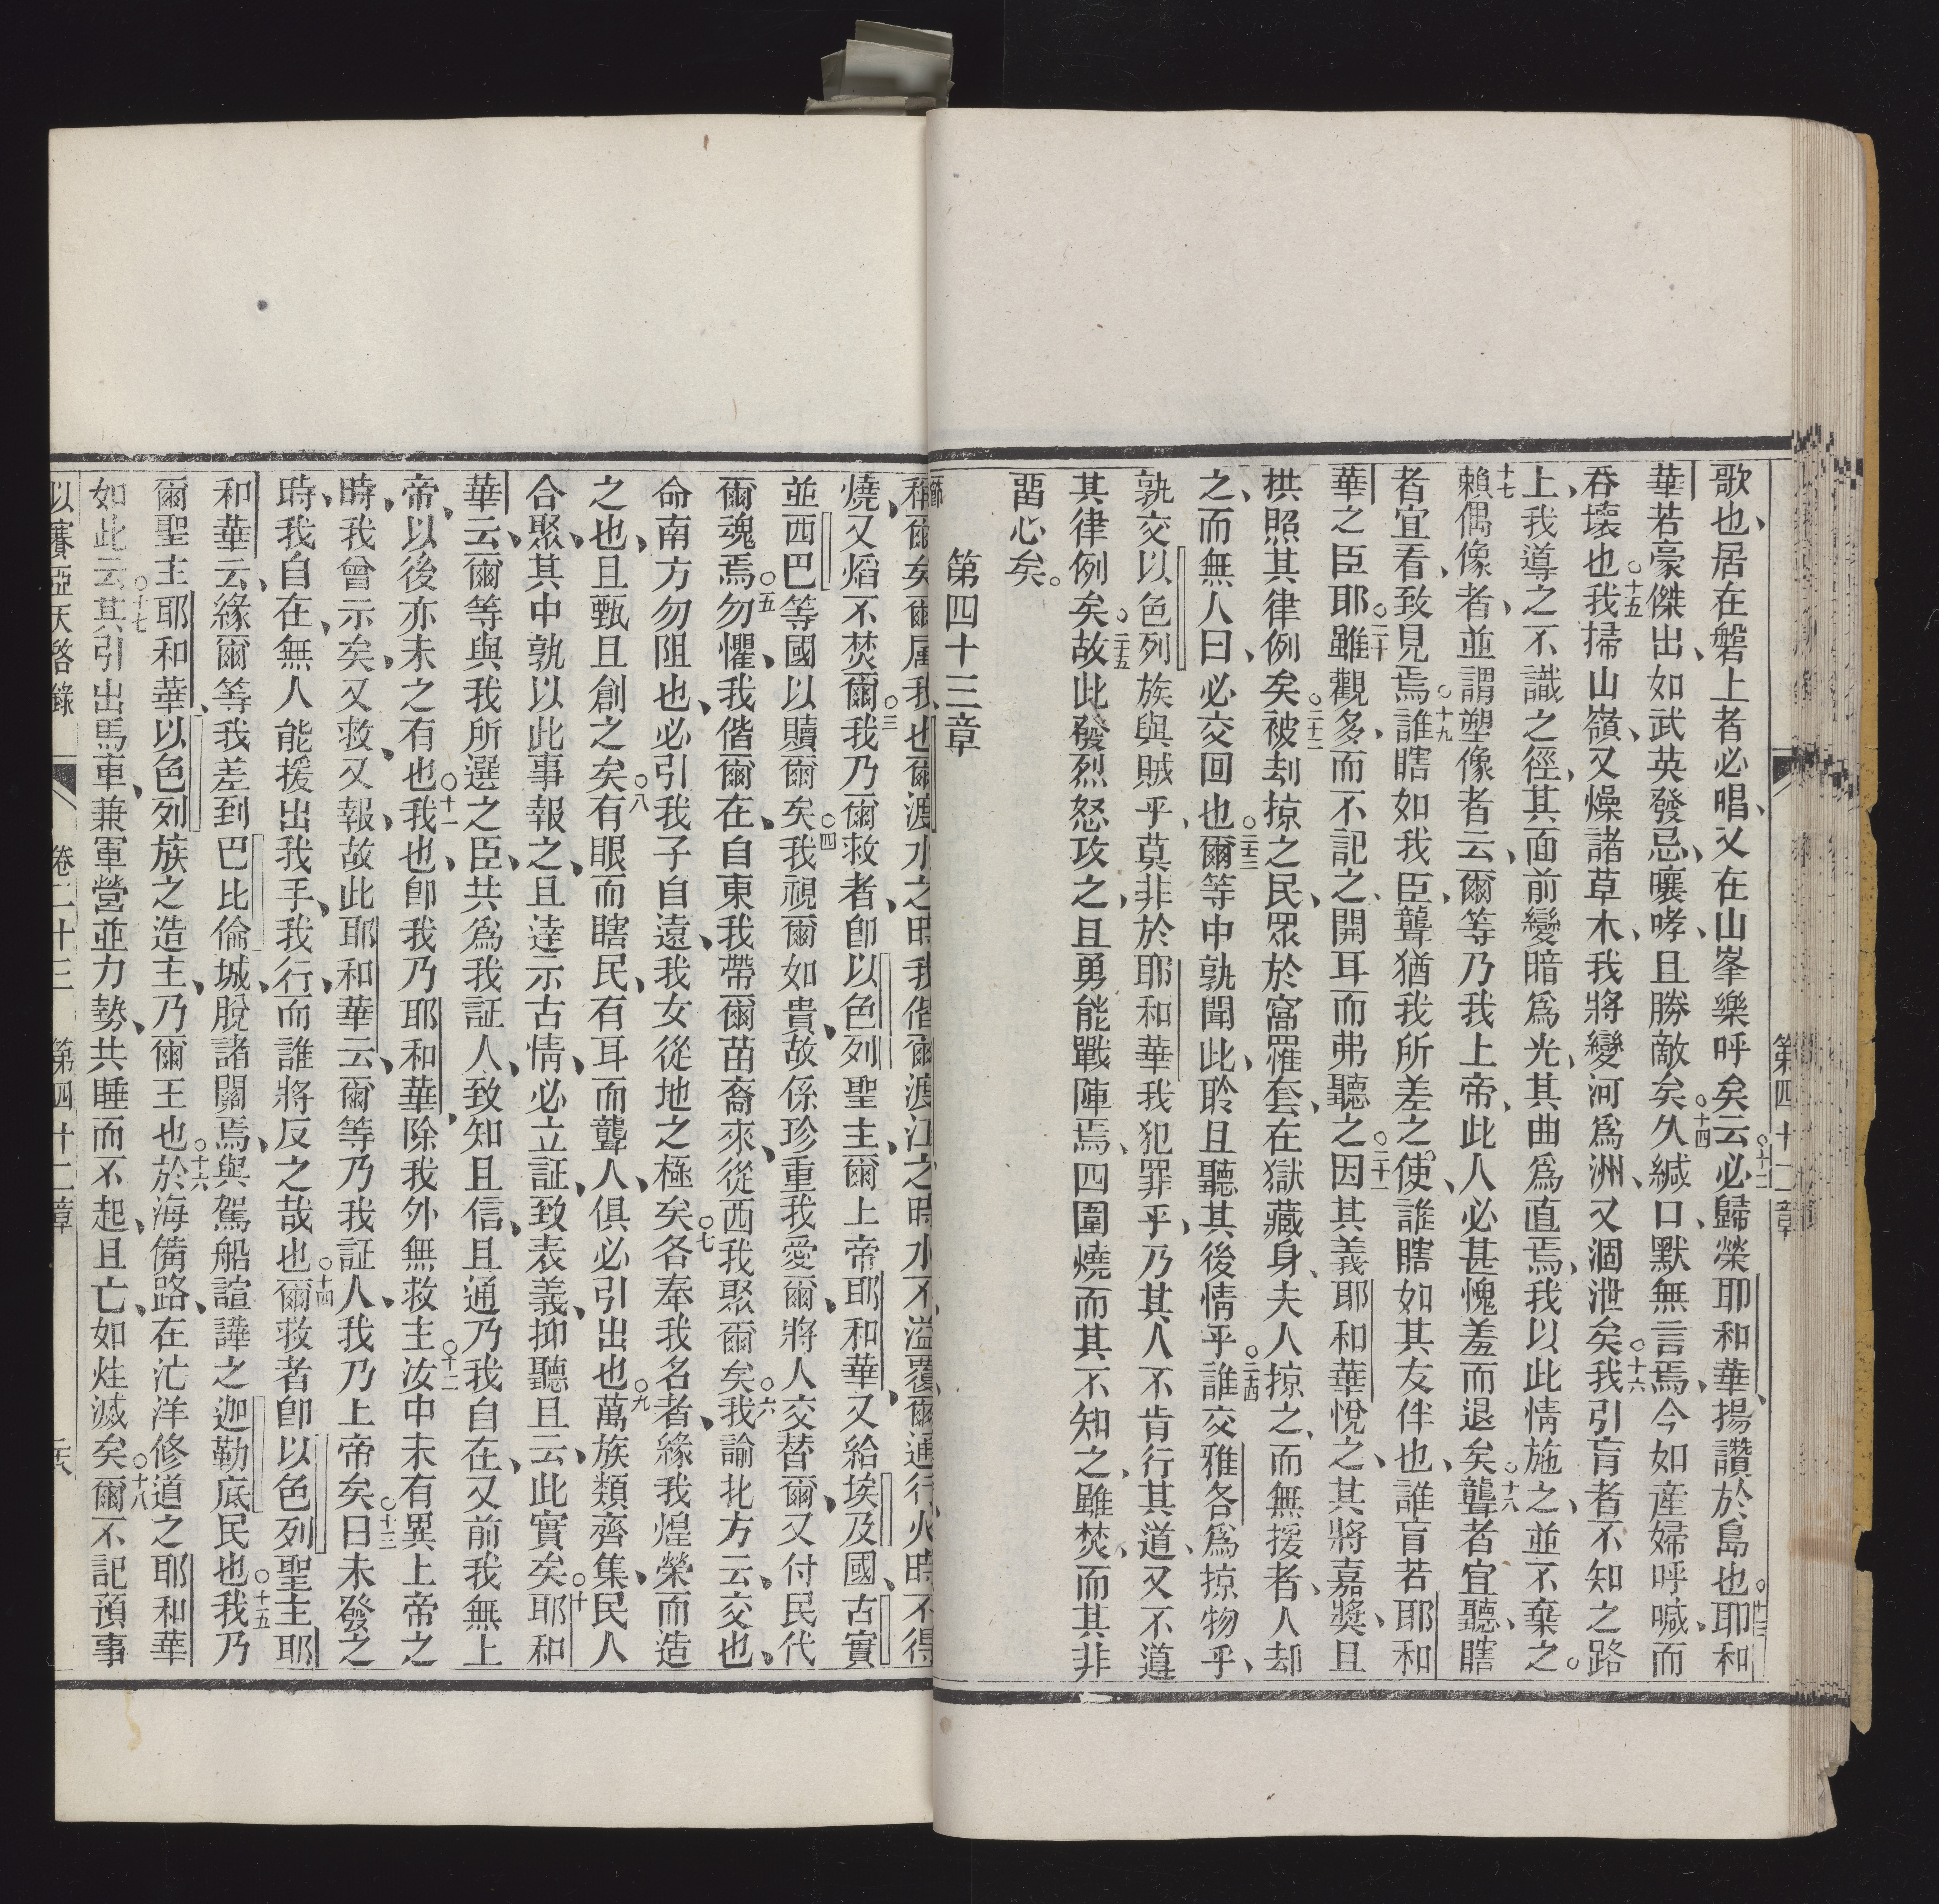 第四十二章
歌也、居在磐上者必唱、又在山峯樂呼矣○十二云必歸榮耶和華、揚讚於島也○十三耶和
華若豪傑出、如武英發忌、嚷哮、且勝敵矣○十四久緘口、默無言焉、今如産婦呼喊、而
吞壞也○十五我掃山嶺、又燥諸草木、我將變河爲洲、又涸泄矣○十六我引盲者不知之路
上、我導之不識之徑、其面前變暗爲光、其曲爲直焉、我以此情施之、並不棄之。
十七賴偶像者、並謂塑像者云、爾等乃我上帝、此人必甚愧羞而退矣○十八聾者宜聽、瞎
者宜看、致見焉○十九誰瞎如我臣、聾猶我所差之使、誰瞎如其友伴也、誰盲若耶和
華之臣耶○二十雖觀多、而不記之、開耳而弗聽之○二十一因其義耶和華悅之、其將嘉獎、且
拱照其律例矣○二十二被刦掠之民、眾於窩罹套、在獄藏身、夫人掠之、而無援者、人却
之、而無人曰、必交回也○二十三爾等中孰聞此、聆且聽其後情乎○二十四誰交雅各爲掠物乎、
孰交以色列族與賊乎、莫非於耶和華我犯罪乎、乃其人不肯行其道、又不遵
其律例矣○二十五故此發烈怒攻之、且勇能戰陣焉、四圍燒而其不知之、雖焚、而其非
畱心矣。
第四十三章
稱爾矣、爾屬我也○爾渡水之時、我偕爾、渡江之時、水不溢覆爾、通行火時、不得
燒、又熖不焚爾○三我乃爾救者、卽以色列聖主、爾上帝耶和華、又給埃及國、古實
並西巴等國以贖爾矣○四我視爾如貴、故係珍重我愛爾、將人交替爾、又付民代
爾魂焉○五勿懼、我偕爾在、自東我帶爾苗裔來、從西我聚爾矣○六我諭北方云、交也、
命南方勿阻也、必引我子自遠、我女從地之極矣○七各奉我名者、緣我煌榮而造
之也、且甄且創之矣○八有眼而瞎民、有耳而聾人、俱必引出也○九萬族類齊集、民人
合聚、其中孰以此事報之、且達示古情、必立証、致表義、抑聽且云、此實矣○十耶和
華云、爾等與我所選之臣、共爲我証人、致知且信、且通乃我自在、又前我無上
帝、以後亦未之有也○十一我也、卽我乃耶和華、除我外無救主○十二汝中未有異上帝之
時、我曾示矣、又救、又報、故此耶和華云、爾等乃我証人、我乃上帝矣○十三日未發之
時、我自在、無人能援出我手、我行、而誰將反之哉也○十四爾救者卽以色列聖主耶
和華云、緣爾等、我差到巴比倫城、脫諸關焉、與駕船諠譁之迦勒底民也○十五我乃
爾聖主耶和華、以色列族之造主、乃爾王也○十六於海備路、在汒洋修道之耶和華
如此云○十七其引出馬車、兼軍營並力勢、共睡而不起、且亡、如炷滅矣○十八爾不記預事
以賽亞天啓錄　卷二十三　第四十二章